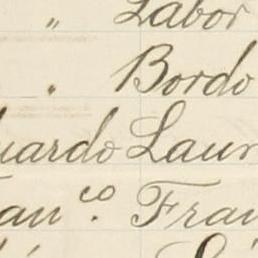 " Labor
" Bordo
uardo Laur
ran.co Fran